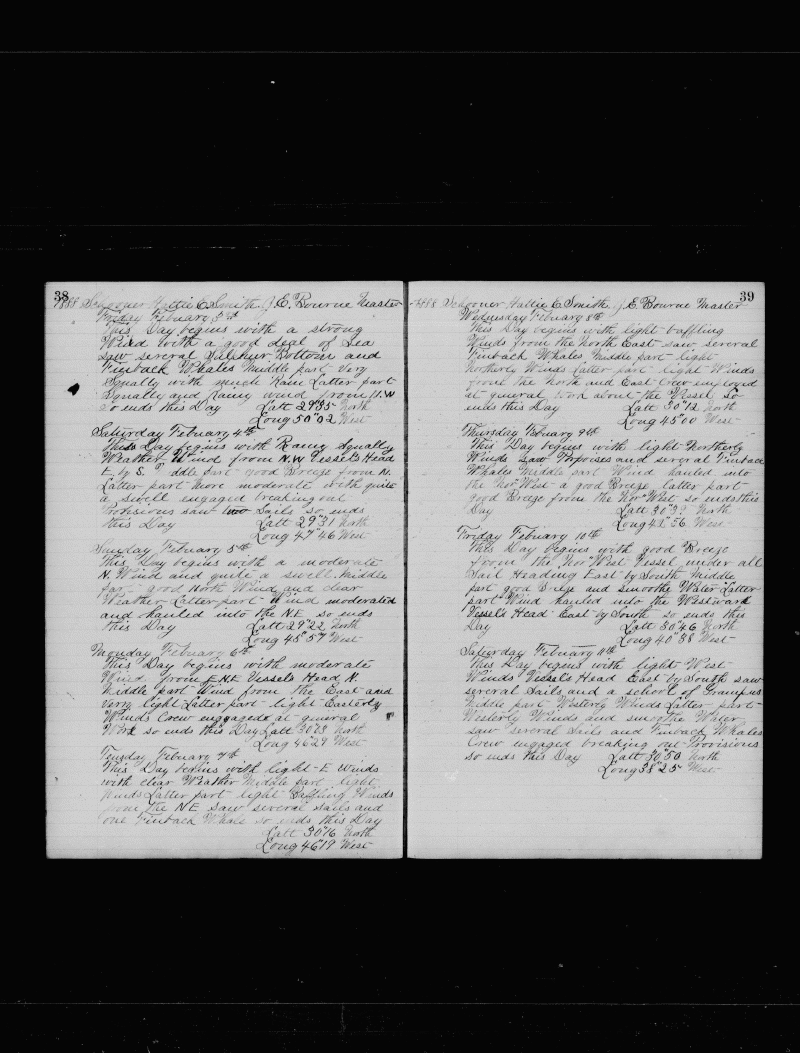 38
1888 Schooner Hattie E. Smith. J. E. Bourne Master
Friday Febuary 3rd
This Day begins with a strong
Wind with a good deal of Sea
saw several Sulphur Bottom and
Finback Whales Middle part Very
Squally with much Rain Latter part
Squally and Rainy wind from N.W
so ends this Day Latt 29"35 North
Long 50"02 West
Saturday Febuary 4th
This Day begins with Rainy Squally
Weather Wind from N.W Vessels Head
E. by S. ddle part good Breeze from N.
Latter part more moderate with quite
a swell engaged breaking out
Provisions saw two Sails so ends
this Day Latt 29"31 North
Long 47"46 West
Sunday Febuary 5th
This Day begins with a moderate
N. Wind and quite a swell Middle
part good North Wind and clear
Weather Latter part Wind moderated
and hauled into the N.E. so ends
this Day Latt 29"22 North
Long 45"57 West
Monday Febuary 6th
This Day begins with moderate
Wind from E.N.E Vessels Head N.
Middle part Wind from the East and
very light Latter part light Easterly
Winds Crew engaged at general
Work so ends this Day Latt North
Long 46"29 West
Tuesday Febuary 7th
This Day begins with light E. Winds
with clear Weather Middle part light
Winds Latter part light Baffling Winds
from the NE saw several Sails and
one Finback Whale so ends this Day
Latt 30"16 North
Long 46"19 West
39
1888 Schooner Hattie E Smith. J. E Bourne Master
Wednesday Febuary 8th
This Day begins with light baffling
Winds from the North East saw several
Finback Whales Middle part light
Northerly Winds Latter part light Winds
from the North and East Crew employed
at general work about the Vessel So
ends this Day Latt 30"12 North
Long 45"00 West
Thursday Febuary 9th
This Day begins with light Northerly
Winds saw Porpoises and several Finback
Whales Middle part Wind hauled into
the Nor West a good Breeze latter part
good Breeze from the Nor West so ends this
Day Latt North
Long 43"56 West
Friday Febuary 10th
This Day begins with good Breeze
from the Nor West Vessel under all
Sail Heading East by South Middle
part good Breeze and smoothe Water Latter
part Wind hauled into the Westward
Vessels Head East by South so ends this
Day Latt 30"46 North
Long 40"38 West
Saturday Febuary 11th
This Day begins with light West
Winds Vessels Head East by South saw
several Sails and a school of Grampus
Middle part Westerly Winds Latter part
Westerly Winds and smoothe Water
saw several Sails and Finback Whales
Crew engaged breaking out Provisions
so ends this Day Latt 30"50 North
Long 38"25 West